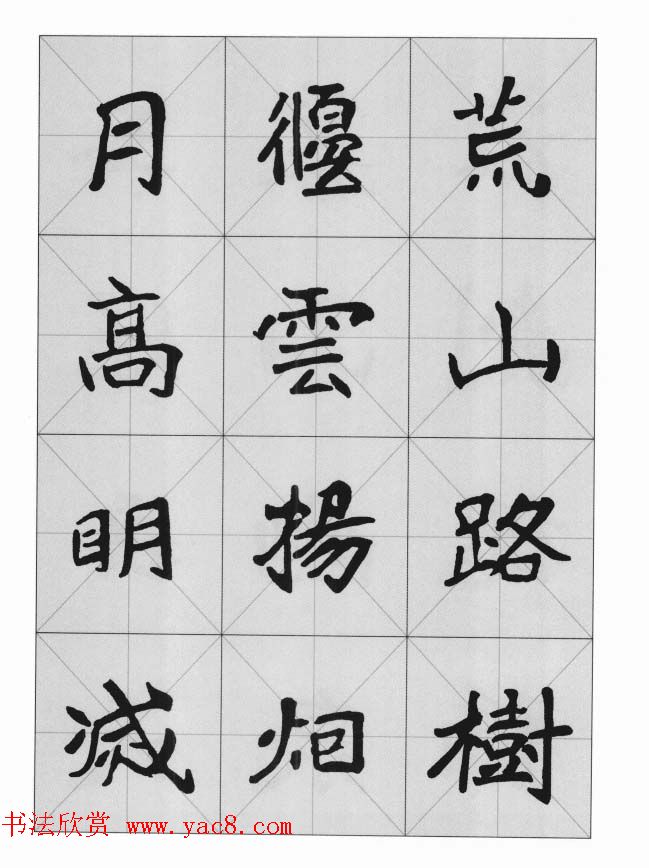 荒山路樹
偃雲揚炯
月高明滅
书法欣赏 www.yac8.com